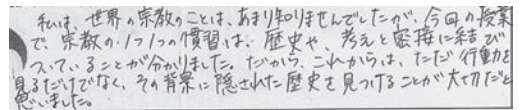 私は、世界の宗教のことは、あまり知りませんでしたが、今回の授業
で、宗教の1つ1つの慣習は、歴史や、考えと密接に結び
ついていることが分かりました。だから、これからは、ただ行動を
見るだけでなく、その背景に隠された歴史を見つけることが大切だと
思いました。